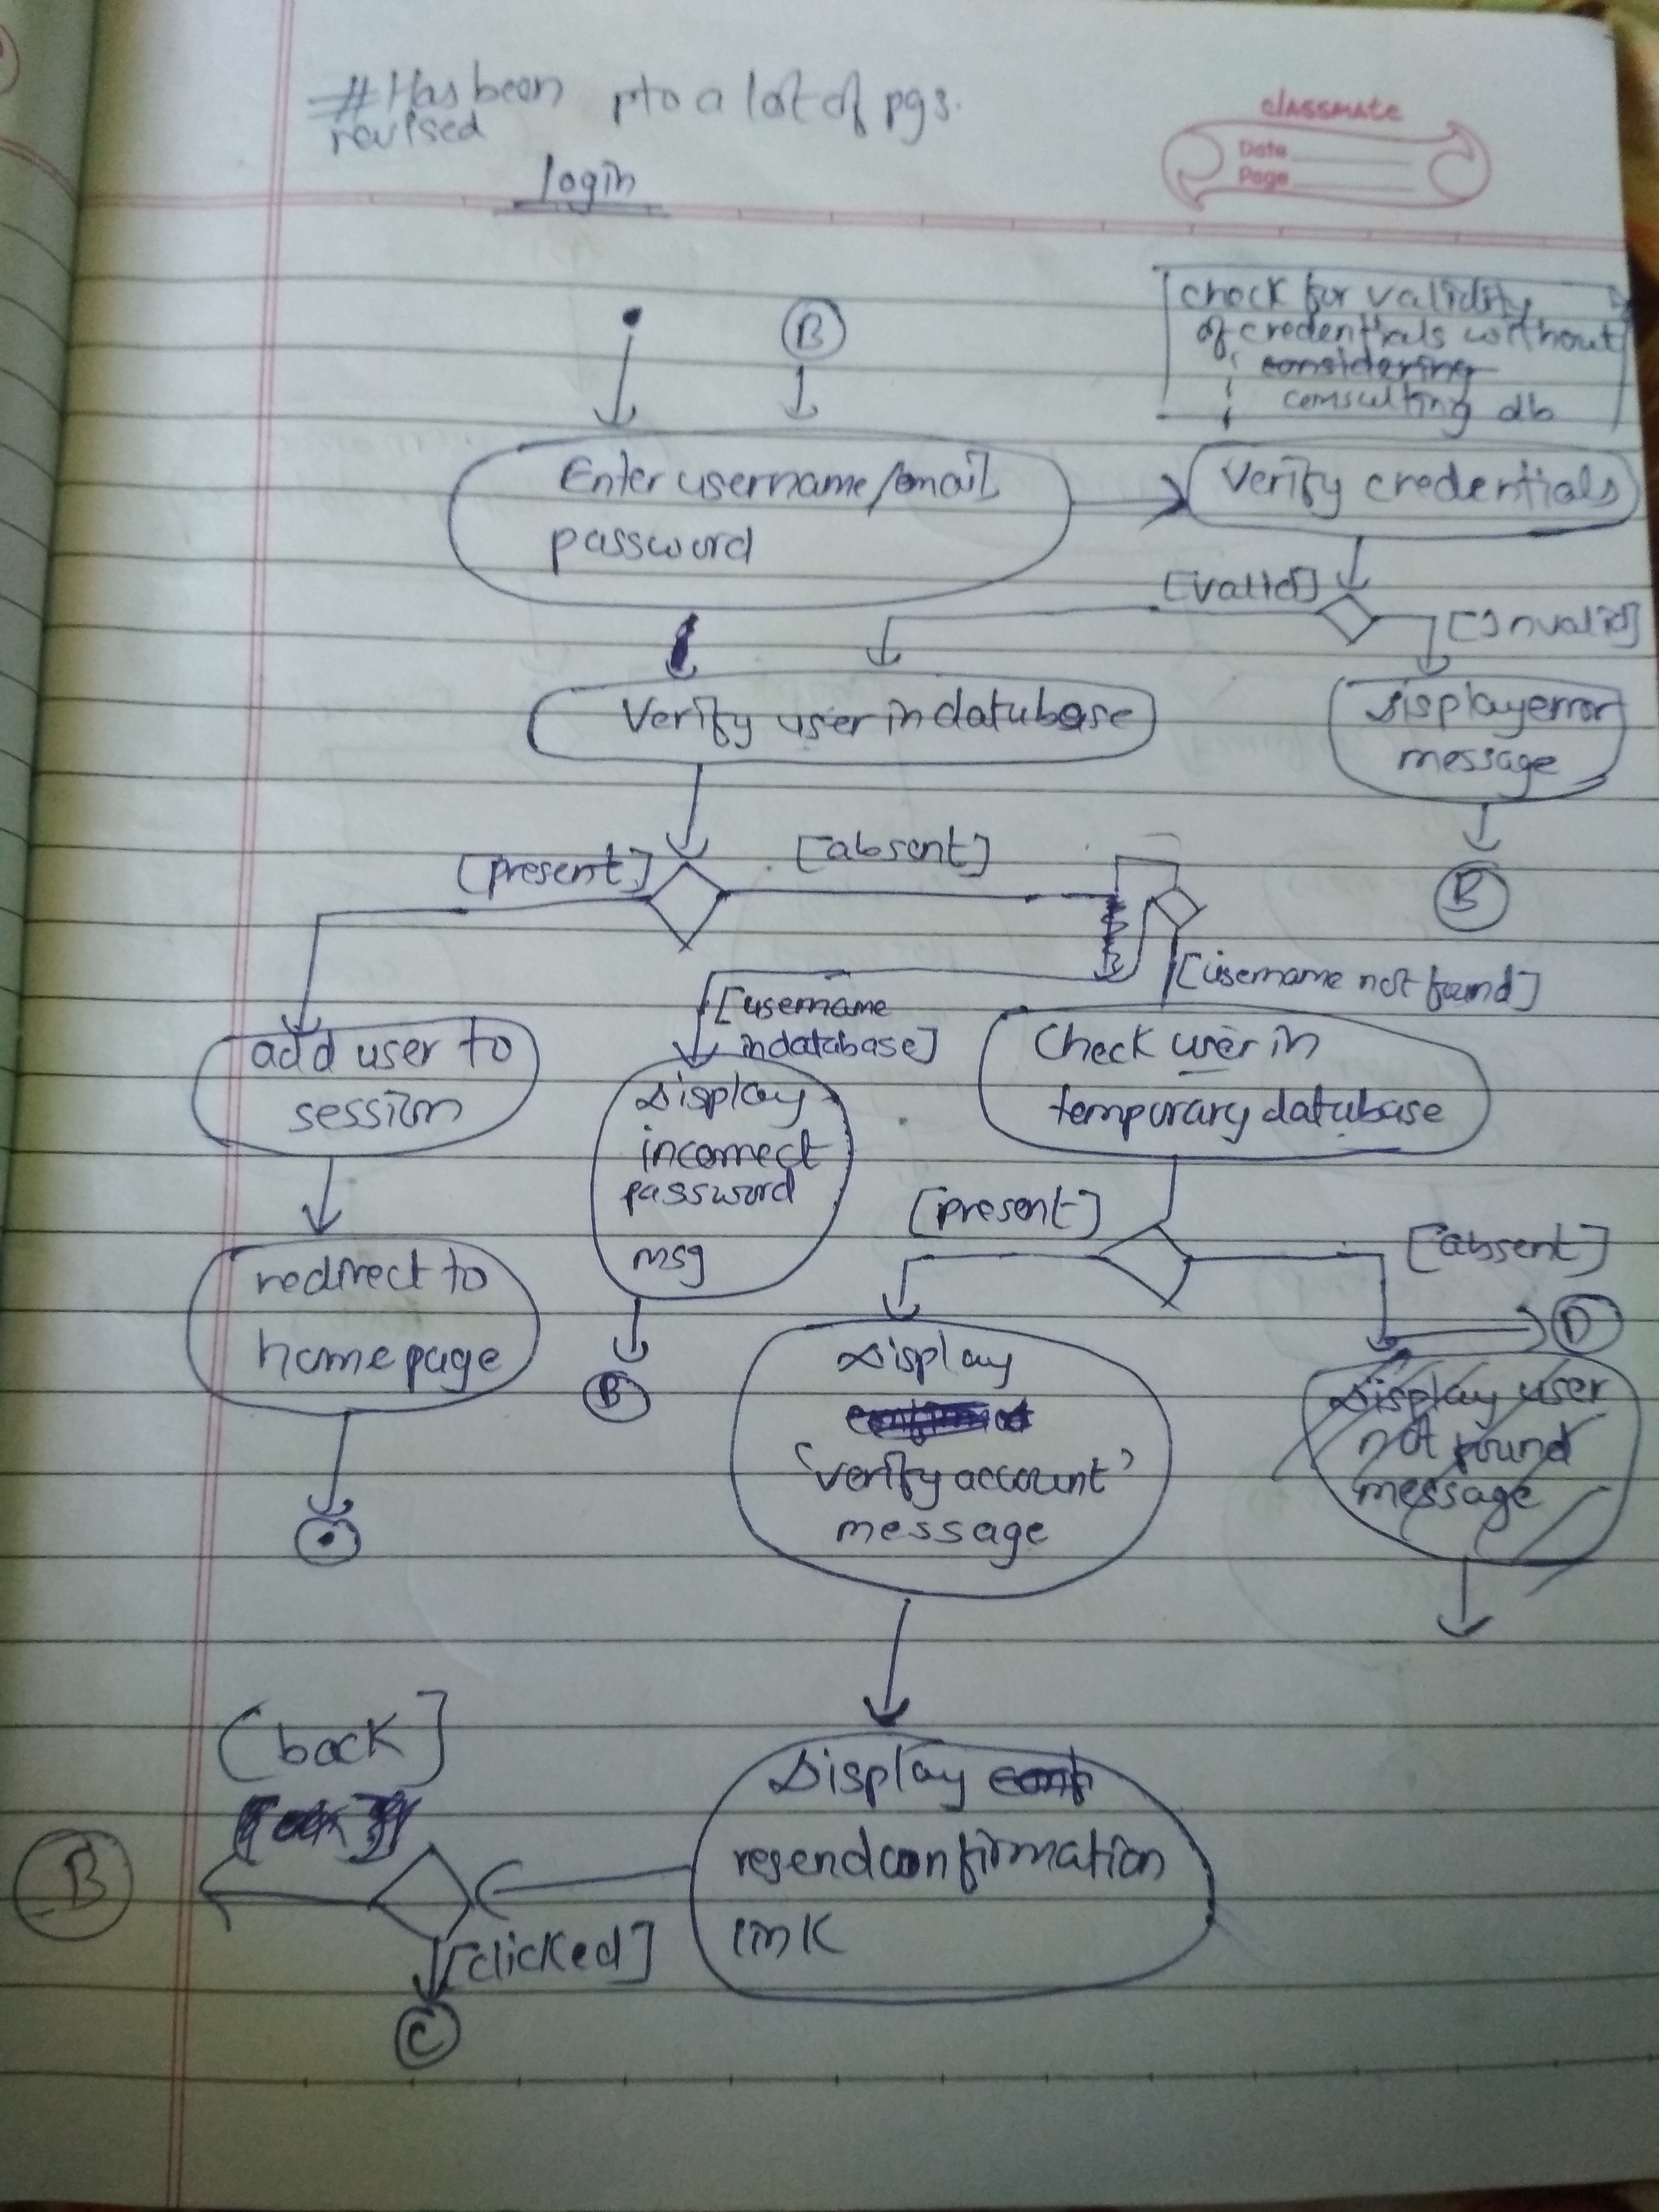 #Has been pto a lot of pgs.
revised
classmate
Date
Page
login
B
check for validity
of credentials without
considering
consulting db
Enter username/email
password
Verify credentials
[valid]
[Invalid]
Verify user in database
Display error
message
B
[present]
[absent]
[username not found]
[username
in database]
add user to
session
Display
incorrect
password
msg
Check user in
temporary database
[present]
[absent]
redirect to
home page
B
D
Display
'verify account'
message
Display user
not found
message
[back]
Display conf
resend confirmation
link
B
[clicked]
C